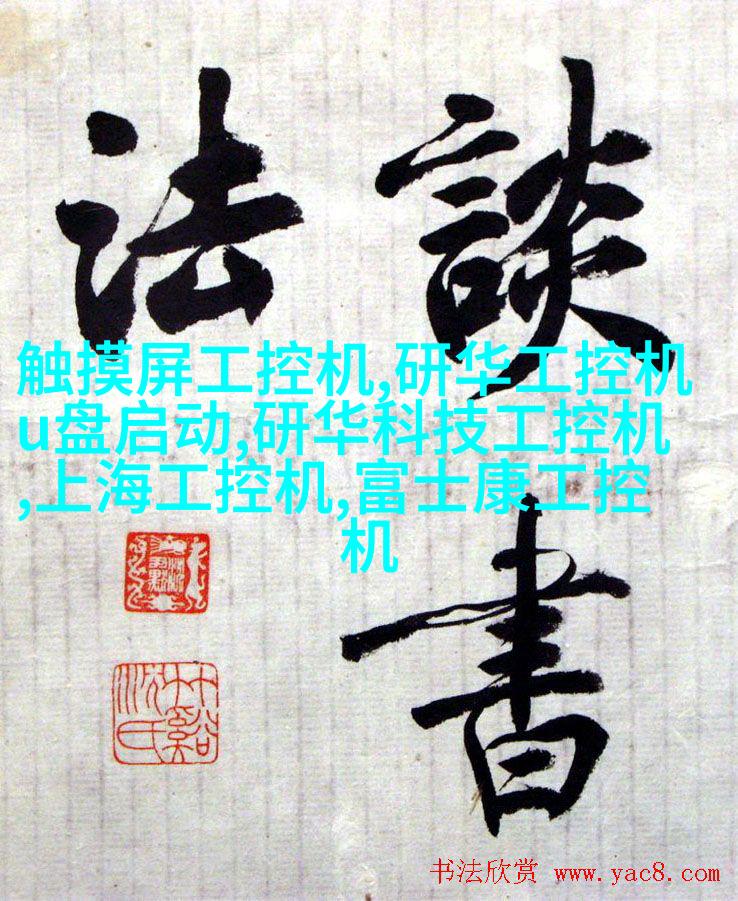 談書
法
触摸屏工控机,研华工控机
u盘启动,研华科技工控机
,上海工控机,富士康工控
机
书法欣赏 www.yac8.com